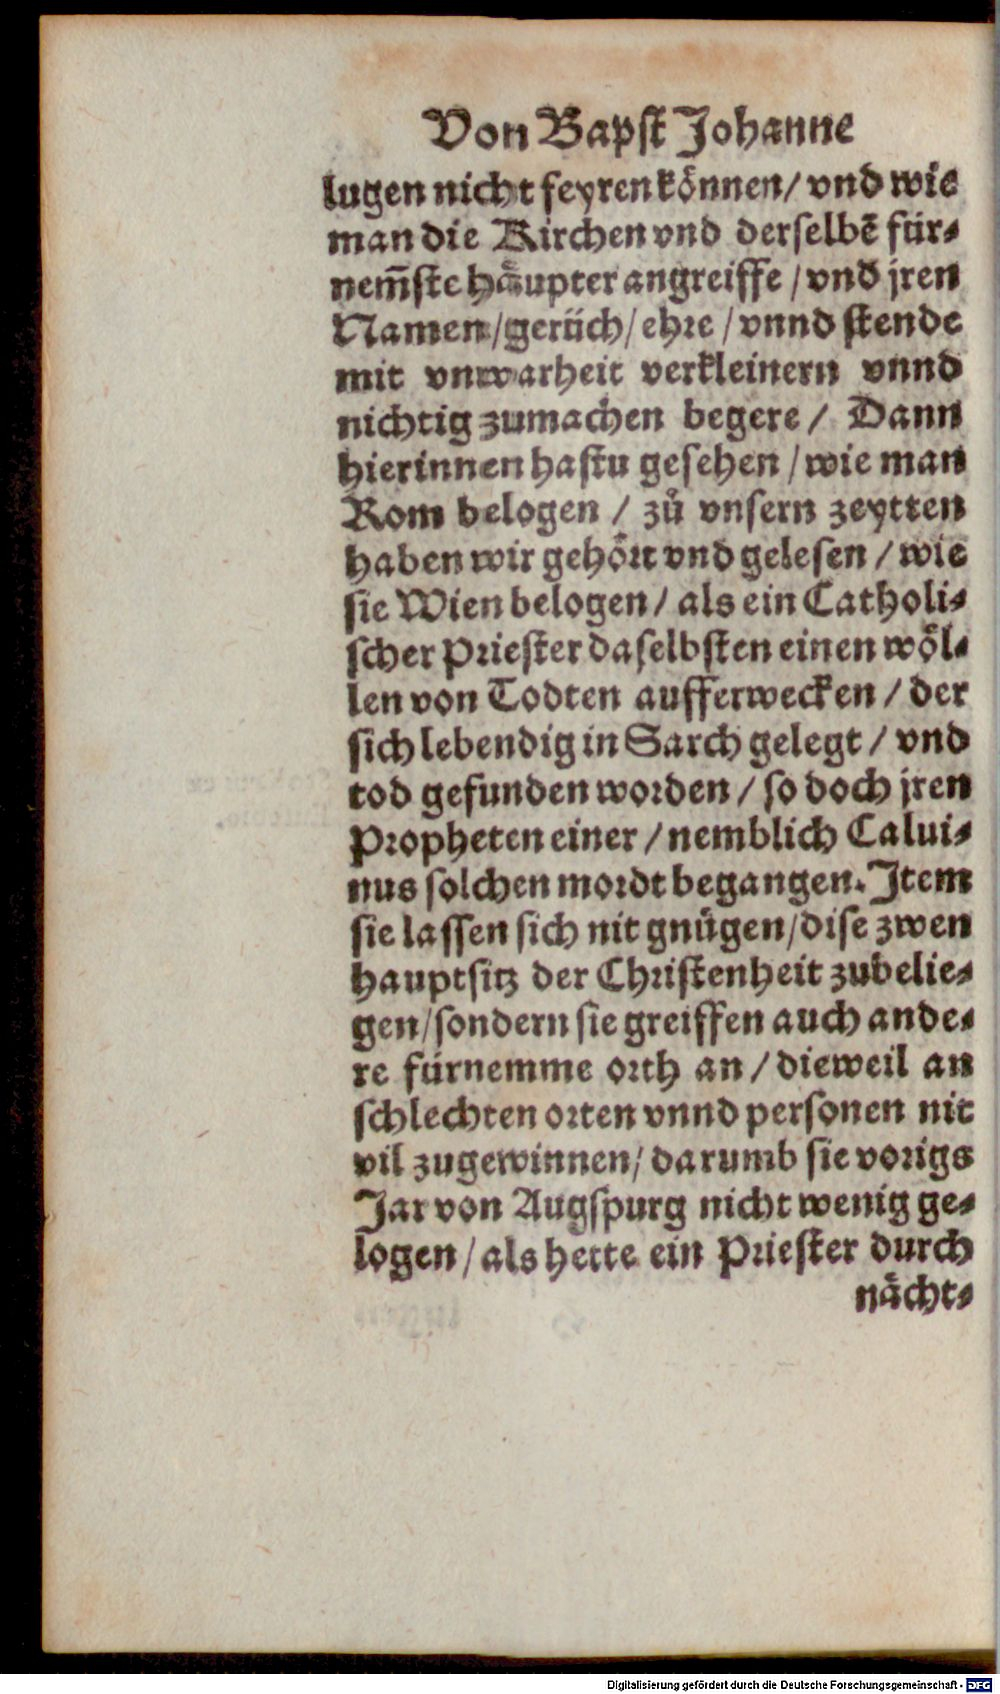 Von Bapst Johanne
lugen nicht feyren können/ vnd wie
man die Kirchen vnd derselbē für-
nem̄ste häupter angreiffe / vnd jren
Namen/gerüch/ ehre / vnnd stende
mit vnwarheit verkleinern vnnd
nichtig zumachen begere / Dann
hierinnen hastu gesehen / wie man
Rom belogen / zů vnsern zeytten
haben wir gehört vnd gelesen / wie
sie Wien belogen/ als ein Catholi-
scher Priester daselbsten einen wöl-
len von Todten aufferwecken / der
sich lebendig in Sarch gelegt / vnd
tod gefunden worden / so doch jren
Propheten einer / nemblich Calui-
nus solchen mordt begangen. Item
sie lassen sich nit gnügen/dise zwen
hauptsitz der Christenheit zubelie-
gen/sondern sie greiffen auch ande-
re fürnemme orth an / dieweil an
schlechten orten vnnd personen nit
vil zugewinnen/ darumb sie vorigs
Jar von Augspurg nicht wenig ge-
logen / als hette ein Priester durch
nächt-
Digitalisierung gefördert durch die Deutsche Forschungsgemeinschaft - DFG